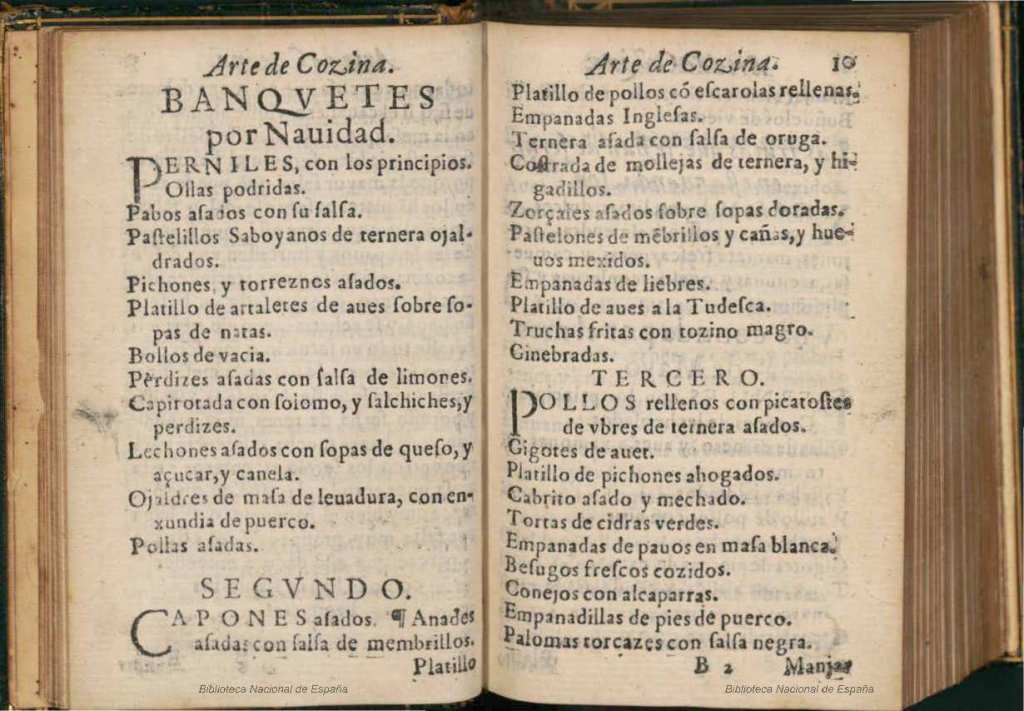 Arte de Cozina.
BANQVETES
por Nauidad.
PERNILES, con los principios.
Ollas podridas.
Pabos aſados con ſu ſalſa.
Paſtelillos Saboyanos de ternera ojal-
drados.
Pichones, y torreznos aſados.
Platillo de artaletes de aues ſobre ſo-
pas de natas.
Bollos de vacia.
Perdizes aſadas con ſalſa de limones.
Capirotada con ſolomo, y ſalchiches, y
perdizes.
Lechones aſados con ſopas de queſo, y
açucar, y canela.
Ojaldres de maſa de leuadura, con en-
xundia de puerco.
Pollas aſadas.
SEGVNDO.
CAPONES aſados. ¶ Anades
aſadas con ſalſa de membrillos.
Platillo
Biblioteca Nacional de España
Arte de Cozina. 10
Platillo de pollos cõ eſcarolas rellenas.
Empanadas Ingleſas.
Ternera aſada con ſalſa de oruga.
Coſtrada de mollejas de ternera, y hi-
gadillos.
Zorçales aſados ſobre ſopas doradas.
Paſtelones de mẽbrillos y cañas, y hue-
uos mexidos.
Empanadas de liebres.
Platillo de aues a la Tudeſca.
Truchas fritas con tozino magro.
Ginebradas.
TERCERO.
POLLOS rellenos con picatoſtes
de vbres de ternera aſados.
Gigotes de aues.
Platillo de pichones ahogados.
Cabrito aſado y mechado.
Tortas de cidras verdes.
Empanadas de pauos en maſa blanca.
Beſugos freſcos cozidos.
Conejos con alcaparras.
Empanadillas de pies de puerco.
Palomas torcazes con ſalſa negra.
B 2 Manjar
Biblioteca Nacional de España